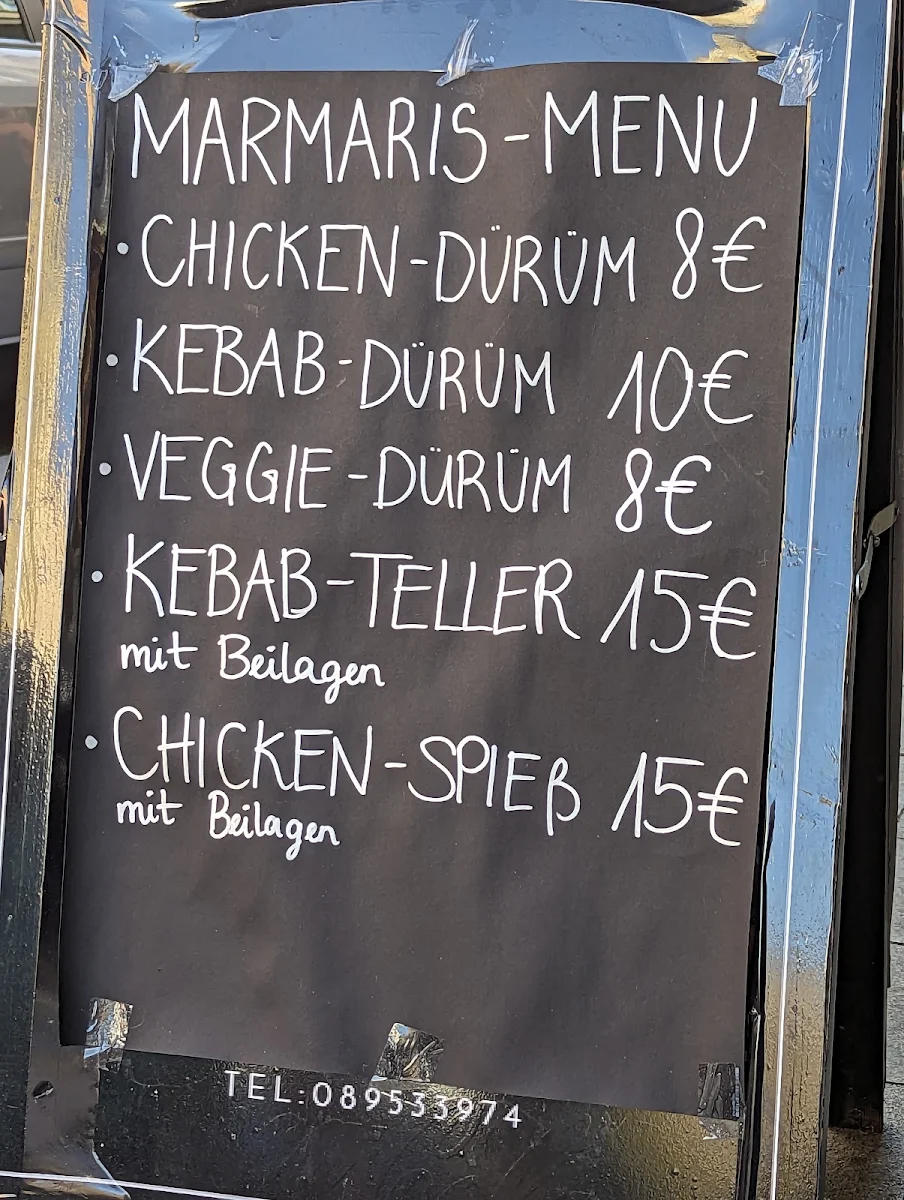 MARMARIS-MENU
• CHICKEN-DÜRÜM 8€
• KEBAB-DÜRÜM 10€
• VEGGIE-DÜRÜM 8€
• KEBAB-TELLER 15€
mit Beilagen
• CHICKEN-SPIEß 15€
mit Beilagen
TEL:089533974